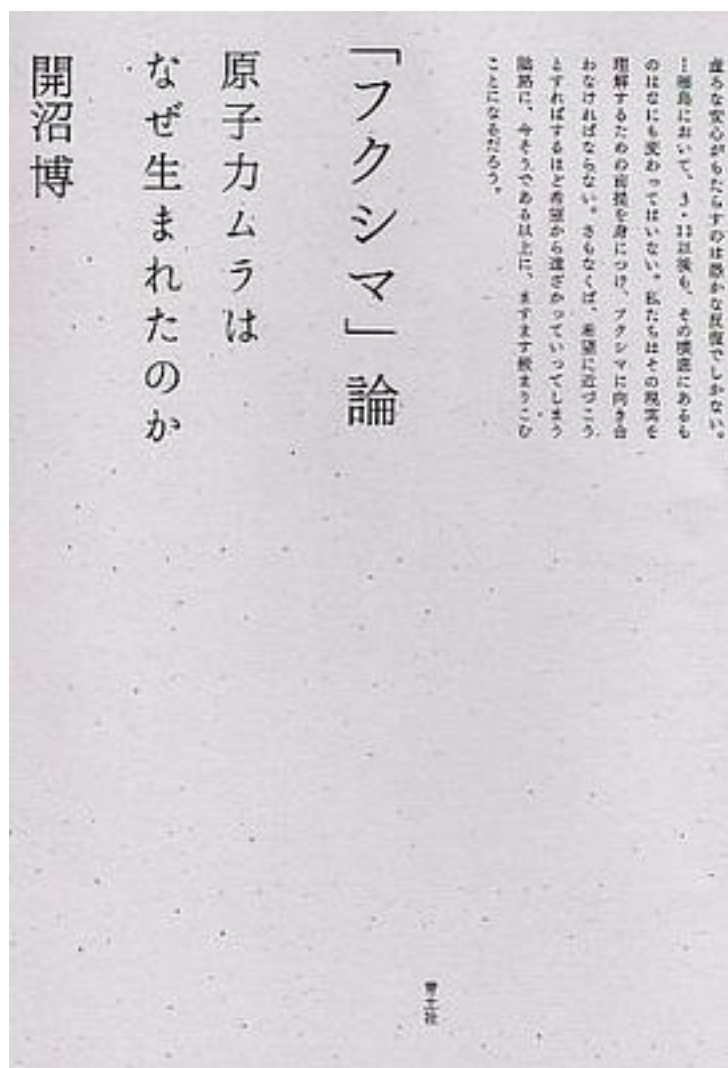 虚ろな安心がもたらすのは愚かな反復でしかない。
福島において、3・11以後も、その根底にあるも
のはなにも変わってはいない。私たちはその現実を
理解するための前提を身につけ、フクシマに向き合
わなければならない。さもなくば、希望に近づこう
とすればするほど希望から遠ざかっていってしまう
隘路に、今そうである以上に、ますます嵌まりこむ
ことになるだろう。
「フクシマ」論
原子力ムラは
なぜ生まれたのか
開沼博
青土社